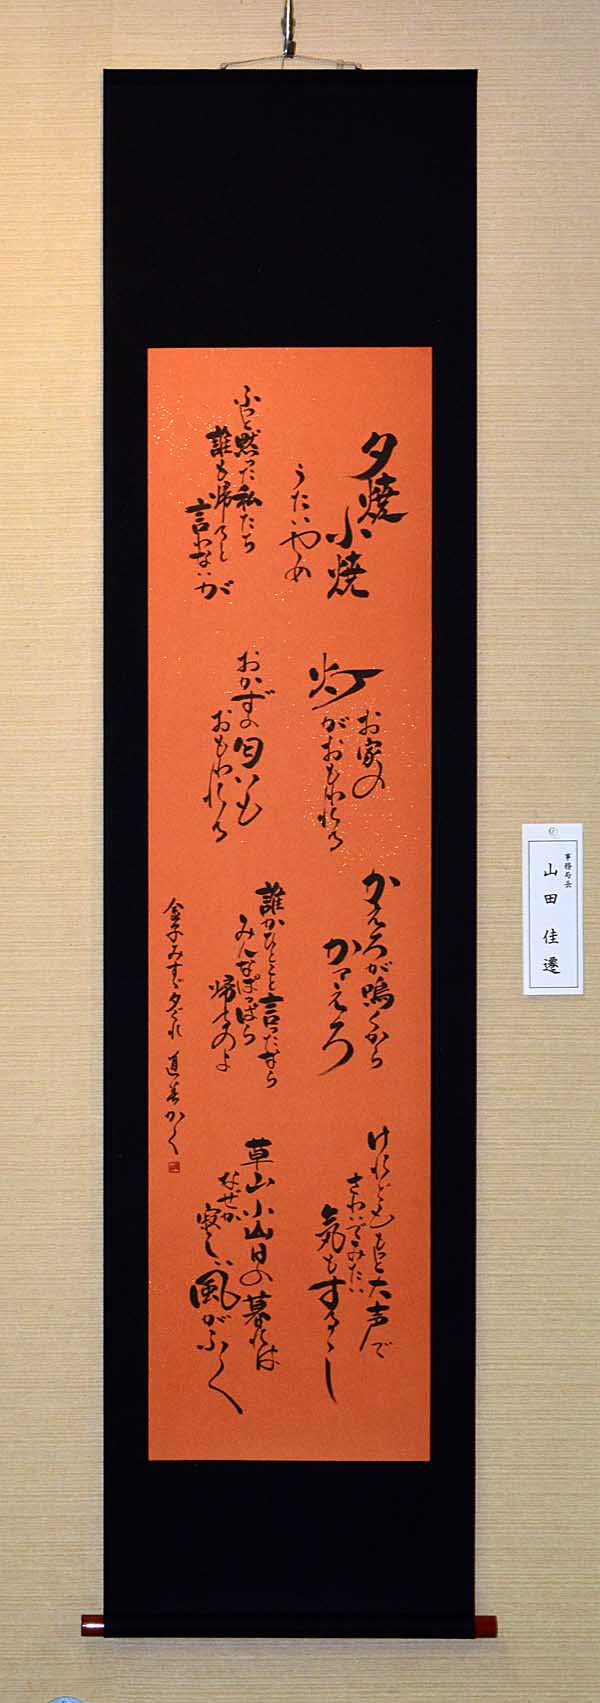 夕焼
小焼
うたいやめ
ふっと黙った私たち
誰も帰ろと
言わないが
お家の
灯がおもわれる
おかずの匂いも
おもわれる
かえろが鳴くから
かァえろ
誰かひとこと言ったなら
みんなばらばら
帰るのよ
けれどももっと大声で
さわいでみたい
気もするし
草山小山日の暮れは
なぜか
寂しい風がふく
金子みすゞ夕ぐれ かく
事務局長
山田佳遷